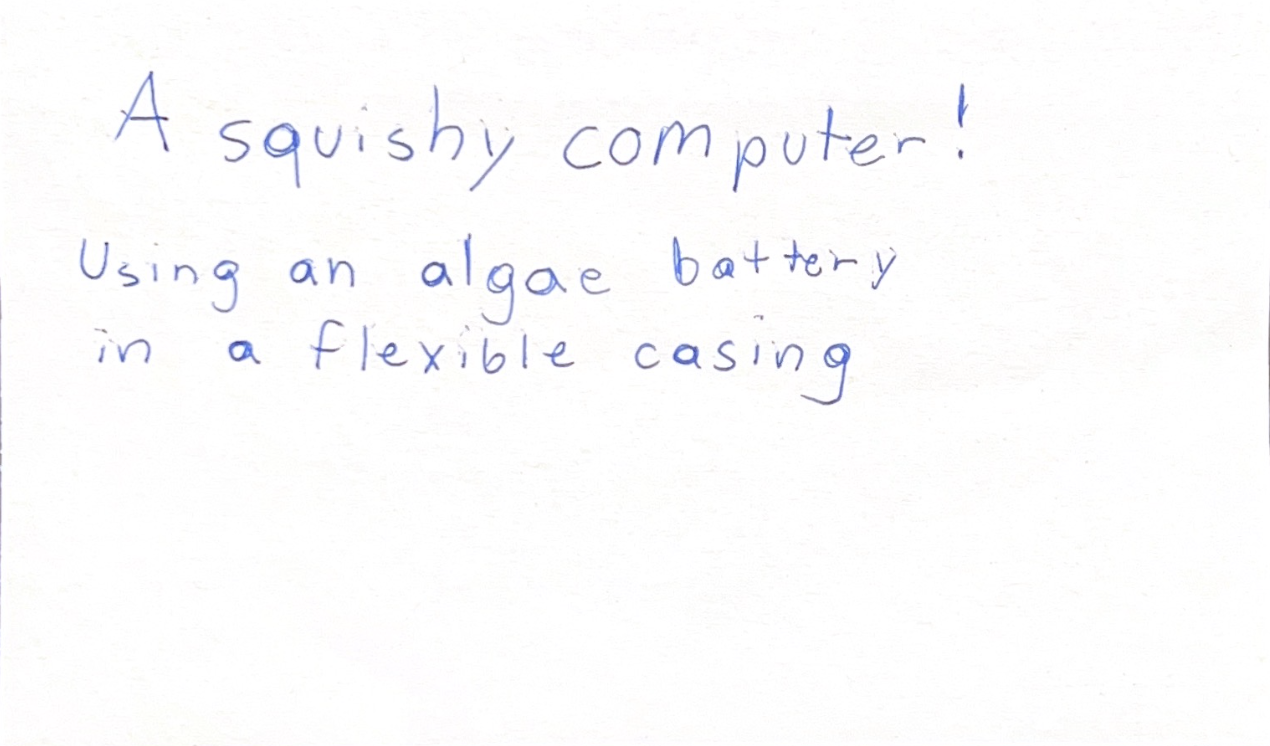 A squishy computer!
Using an algae battery
in a flexible casing